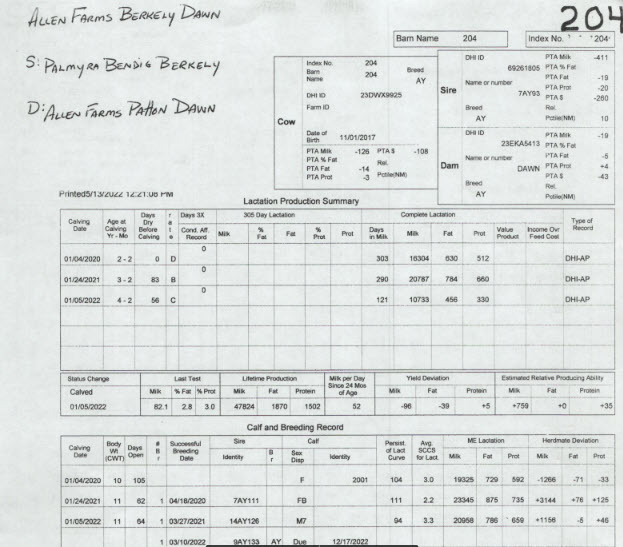 ALLEN FARMS BERKELY DAWN
204
Barn Name 204 Index No. 204
S: PALMYRA BENDIG BERKELY
D: ALLEN FARMS PATTON DAWN
Cow
Index No. 204
Barn Name 204 Breed AY
DHI ID 23DWX9925
Farm ID
Date of Birth 11/01/2017
PTA Milk -126 PTA $ -108
PTA % Fat Rel.
PTA Fat -14
PTA Prot -3 Pctile(NM)
Sire
DHI ID 69261805
Name or number 7AY93
Breed AY
PTA Milk -411
PTA % Fat
PTA Fat -19
PTA Prot -20
PTA $ -260
Rel.
Pctile(NM) 10
Dam
DHI ID 23EKA5413
Name or number DAWN
Breed AY
PTA Milk -19
PTA % Fat
PTA Fat -5
PTA Prot +4
PTA $ -43
Rel.
Pctile(NM)
Printed5/13/2022 12:21:08 PM
Lactation Production Summary
Calving Date Age at Calving Yr - Mo Days Dry Before Calving r a t e Days 3X 305 Day Lactation Complete Lactation Type of Record
Cond. Aff. Record Milk % Fat Fat % Prot Prot Days in Milk Milk Fat Prot Value Product Income Ovr Feed Cost
0
01/04/2020 2 - 2 0 D 303 16304 630 512 DHI-AP
0
01/24/2021 3 - 2 83 B 290 20787 784 660 DHI-AP
0
01/05/2022 4 - 2 56 C 121 10733 456 330 DHI-AP
Status Change Last Test Lifetime Production Milk per Day Since 24 Mos of Age Yield Deviation Estimated Relative Producing Ability
Calved Milk % Fat % Prot Milk Fat Protein Milk Fat Protein Milk Fat Protein
01/05/2022 82.1 2.8 3.0 47824 1870 1502 52 -96 -39 +5 +759 +0 +35
Calf and Breeding Record
Calving Date Body Wt (CWT) Days Open # B r Successful Breeding Date Sire Calf Persist. of Lact Curve Avg. SCCS for Lact. ME Lactation Herdmate Deviation
Identity B r Sex Disp Identity Milk Fat Prot Milk Fat Prot
01/04/2020 10 105 F 2001 104 3.0 19325 729 592 -1266 -71 -33
01/24/2021 11 62 1 04/18/2020 7AY111 FB 111 2.2 23345 875 735 +3144 +76 +125
01/05/2022 11 64 1 03/27/2021 14AY126 M7 94 3.3 20958 786 659 +1156 -5 +46
1 03/10/2022 9AY133 AY Due 12/17/2022